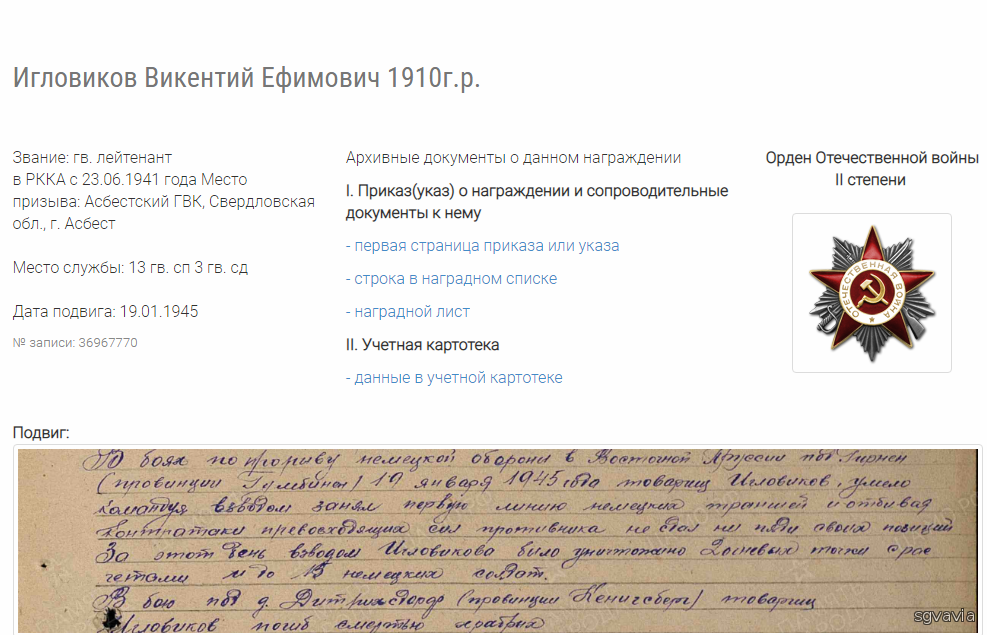 Игловиков Викентий Ефимович 1910г.р.
Звание: гв. лейтенант
в РККА с 23.06.1941 года Место
призыва: Асбестский ГВК, Свердловская
обл., г. Асбест
Место службы: 13 гв. сп 3 гв. сд
Дата подвига: 19.01.1945
№ записи: 36967770
Архивные документы о данном награждении
I. Приказ(указ) о награждении и сопроводительные
документы к нему
- первая страница приказа или указа
- строка в наградном списке
- наградной лист
II. Учетная картотека
- данные в учетной картотеке
Орден Отечественной войны
II степени
ОТЕЧЕСТВЕННАЯ ВОЙНА
Подвиг:
В боях по прорыву немецкой обороны в Восточной Пруссии под
(провинции Гумбинен) 19 января 1945 года товарищ Игловиков, умело
командуя взводом занял первую линию немецких траншей и отбивая
контратаки превосходящих сил противника не сдал ни пяди своих позиций
За этот день взводом Игловикова было уничтожено 2 огневых точки с рас
четами и до 15 немецких солдат.
В бою под д. (провинции Кенигсберг) товарищ
Игловиков погиб смертью храбрых
sgvavia